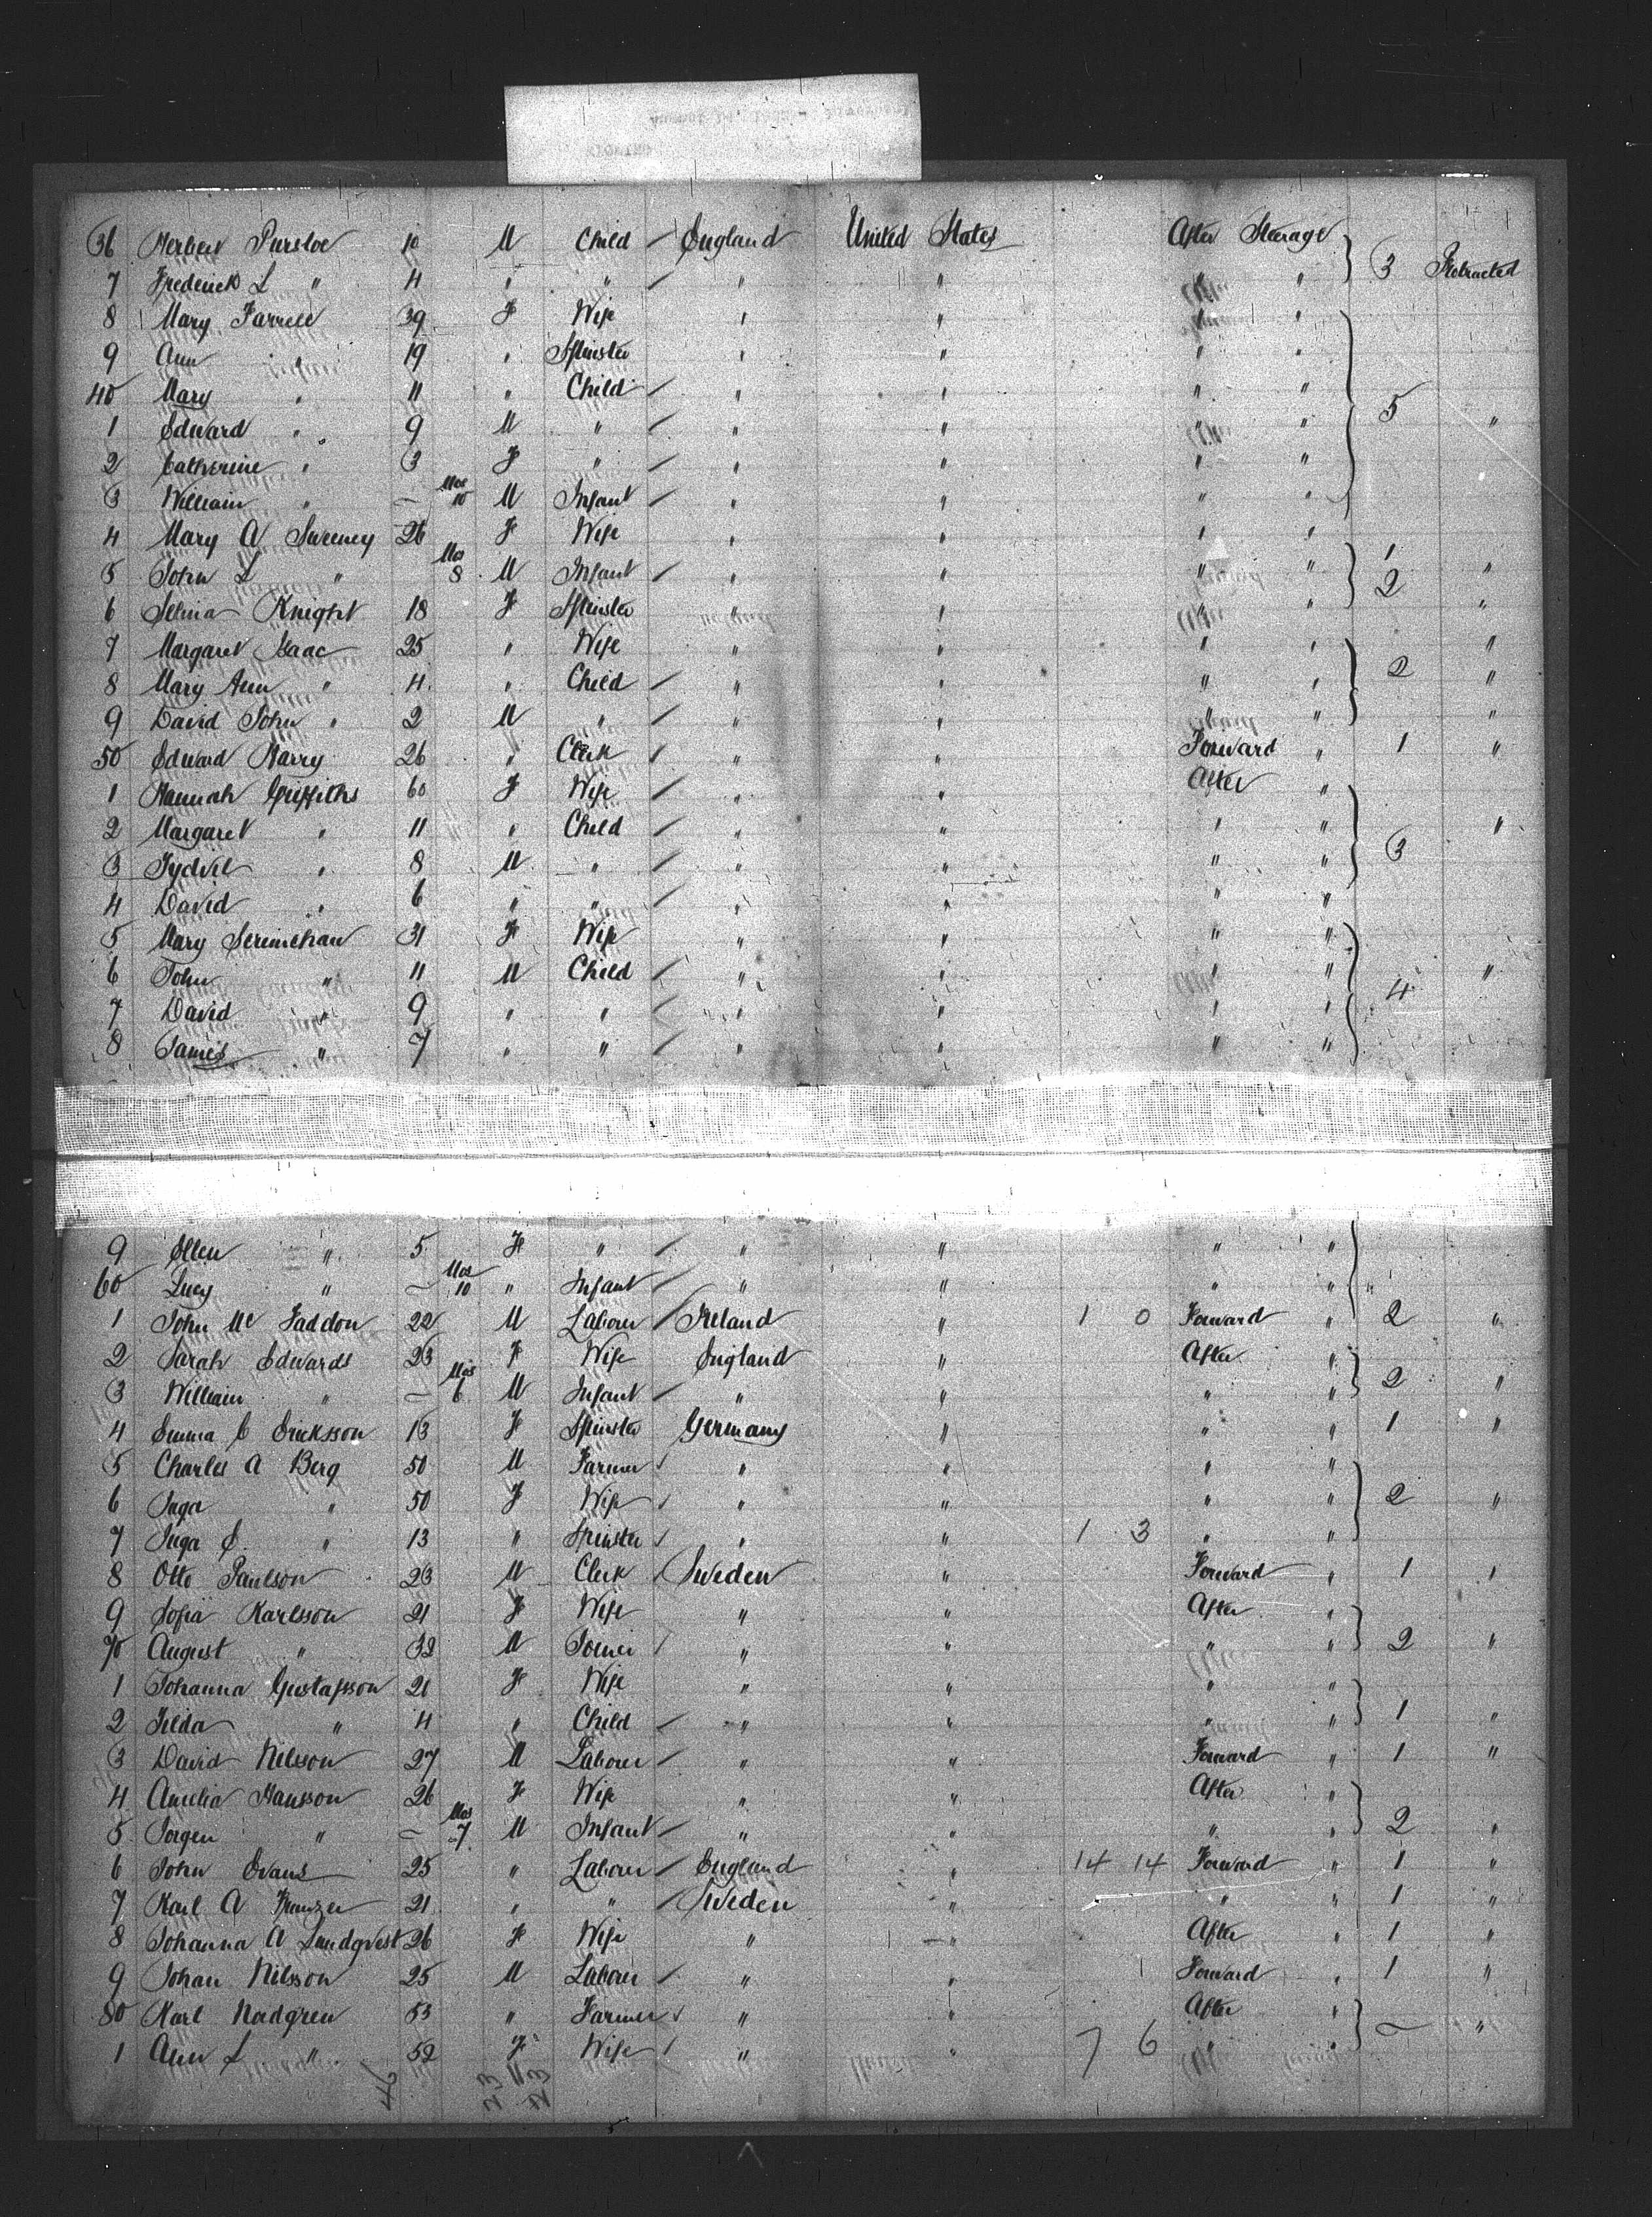 36 Herbert Pursloe 10 M Child England United States After Steerage 3 Protracted
7 Frederick L " 4 " " " " " "
8 Mary Farrell 39 F Wife " " " "
9 Ann " 19 " Spinster " " " "
40 Mary " 11 " Child " " " "
1 Edward " 9 M " " " " " 5 "
2 Catherine " 3 F " " " " "
3 William " — Mos 10 M Infant " " " "
4 Mary A Sweeney 26 F Wife " " " "
5 John L " Mos 8 M Infant " " " " 1 "
6 Selina Knight 18 F Spinster " " " " 2 "
7 Margaret Isaac 25 " Wife " " " " "
8 Mary Ann " 4 " Child " " " " 2 "
9 David John " 2 M " " " " " "
50 Edward Harry 26 " Clerk " " Forward " 1 "
1 Hannah Griffiths 60 F Wife " " After "
2 Margaret " 11 " Child " " " " "
3 Tydvil " 8 M " " " " " 3
4 David " 6 " " " " " "
5 Mary Scrimshaw 31 F Wife " " " "
6 John " 11 M Child " " " " 4 "
7 David " 9 " " " " " "
8 James " 7 " " " " " "
9 Ellen " 5 F " " " " "
60 Lucy " — Mos 10 " Infant " " " " "
1 John Mc Faddon 22 M Laborer Ireland " 1 0 Forward " 2 "
2 Sarah Edwards 23 F Wife England " After "
3 William " — Mos 6 M Infant " " " " 2 "
4 Emma C Ericksson 13 F Spinster Germany " " 1 "
5 Charles A Berg 50 M Farmer " " " "
6 Inga " 50 F Wife " " " " 2 "
7 Inga C. " 13 " Spinster " " 1 3 " "
8 Otto Paulson 23 M Clerk Sweden " Forward " 1 "
9 Sofia Karlsson 21 F Wife " " After "
70 August " 32 M Joiner " " " " 2 "
1 Johanna Gustafsson 21 F Wife " " " "
2 Tilda " 4 " Child " " " " 1 "
3 David Nilsson 27 M Laborer " " Forward " 1 "
4 Amelia Hansson 26 F Wife " " After "
5 Jorgen " — Mos 7 M Infant " " " " 2 "
6 John Evans 25 " Laborer England " 14 14 Forward " 1 "
7 Karl A Franzen 21 " " Sweden " " " 1 "
8 Johanna A Lundqvest 26 F Wife " " After " 1 "
9 Johan Nilsson 25 M Laborer " " Forward " 1 "
80 Karl Nordgren 53 " Farmer " " After "
1 Ann L " 52 F Wife " " 7 6 " " — "
46 23 23